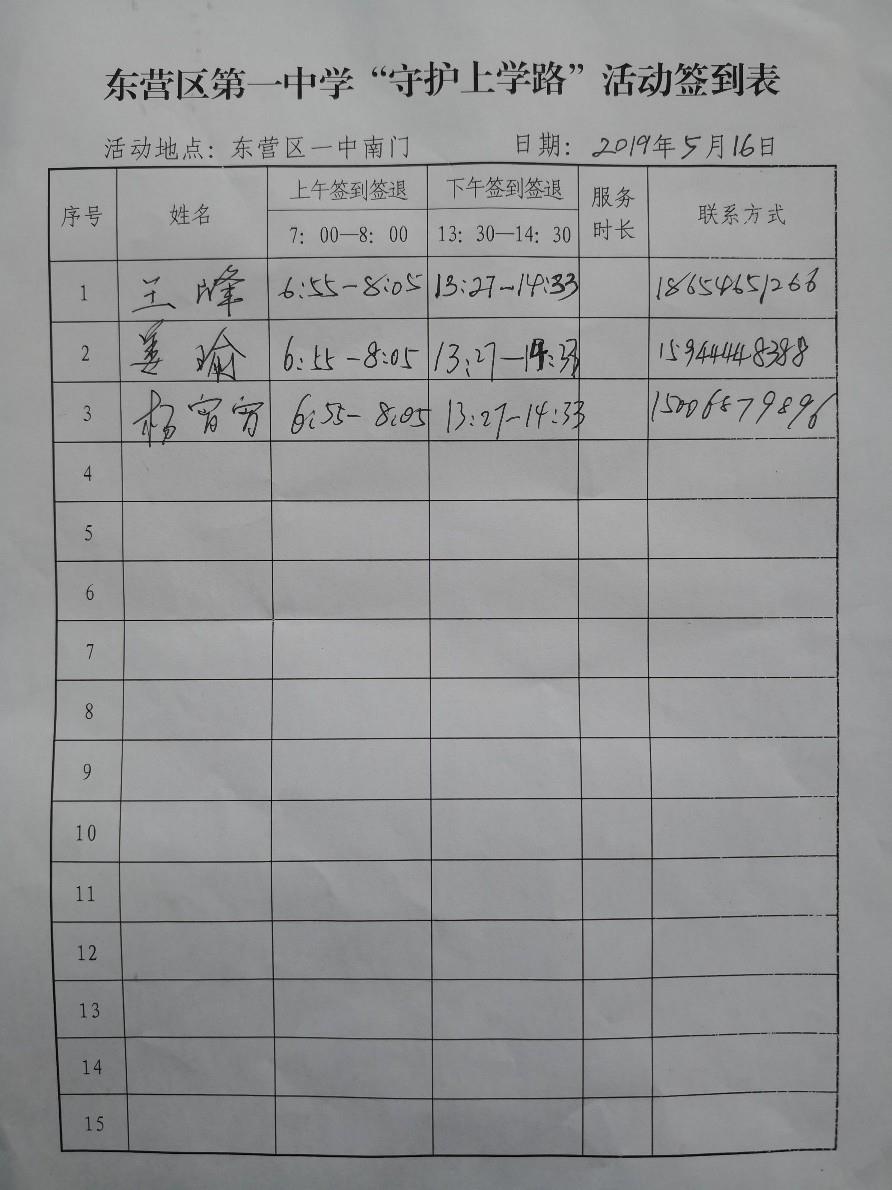 东营区第一中学“守护上学路”活动签到表
活动地点：东营区一中南门 日期：2019年5月16日
序号 姓名 上午签到签退 下午签到签退 服务时长 联系方式
7：00—8：00 13：30—14：30
1 王峰 6:55-8:05 13:27-14:33 18654651266
2 姜瑜 6:55-8:05 13:27-14:33 15944448388
3 杨宵宵 6:55-8:05 13:27-14:33 15006879896
4
5
6
7
8
9
10
11
12
13
14
15